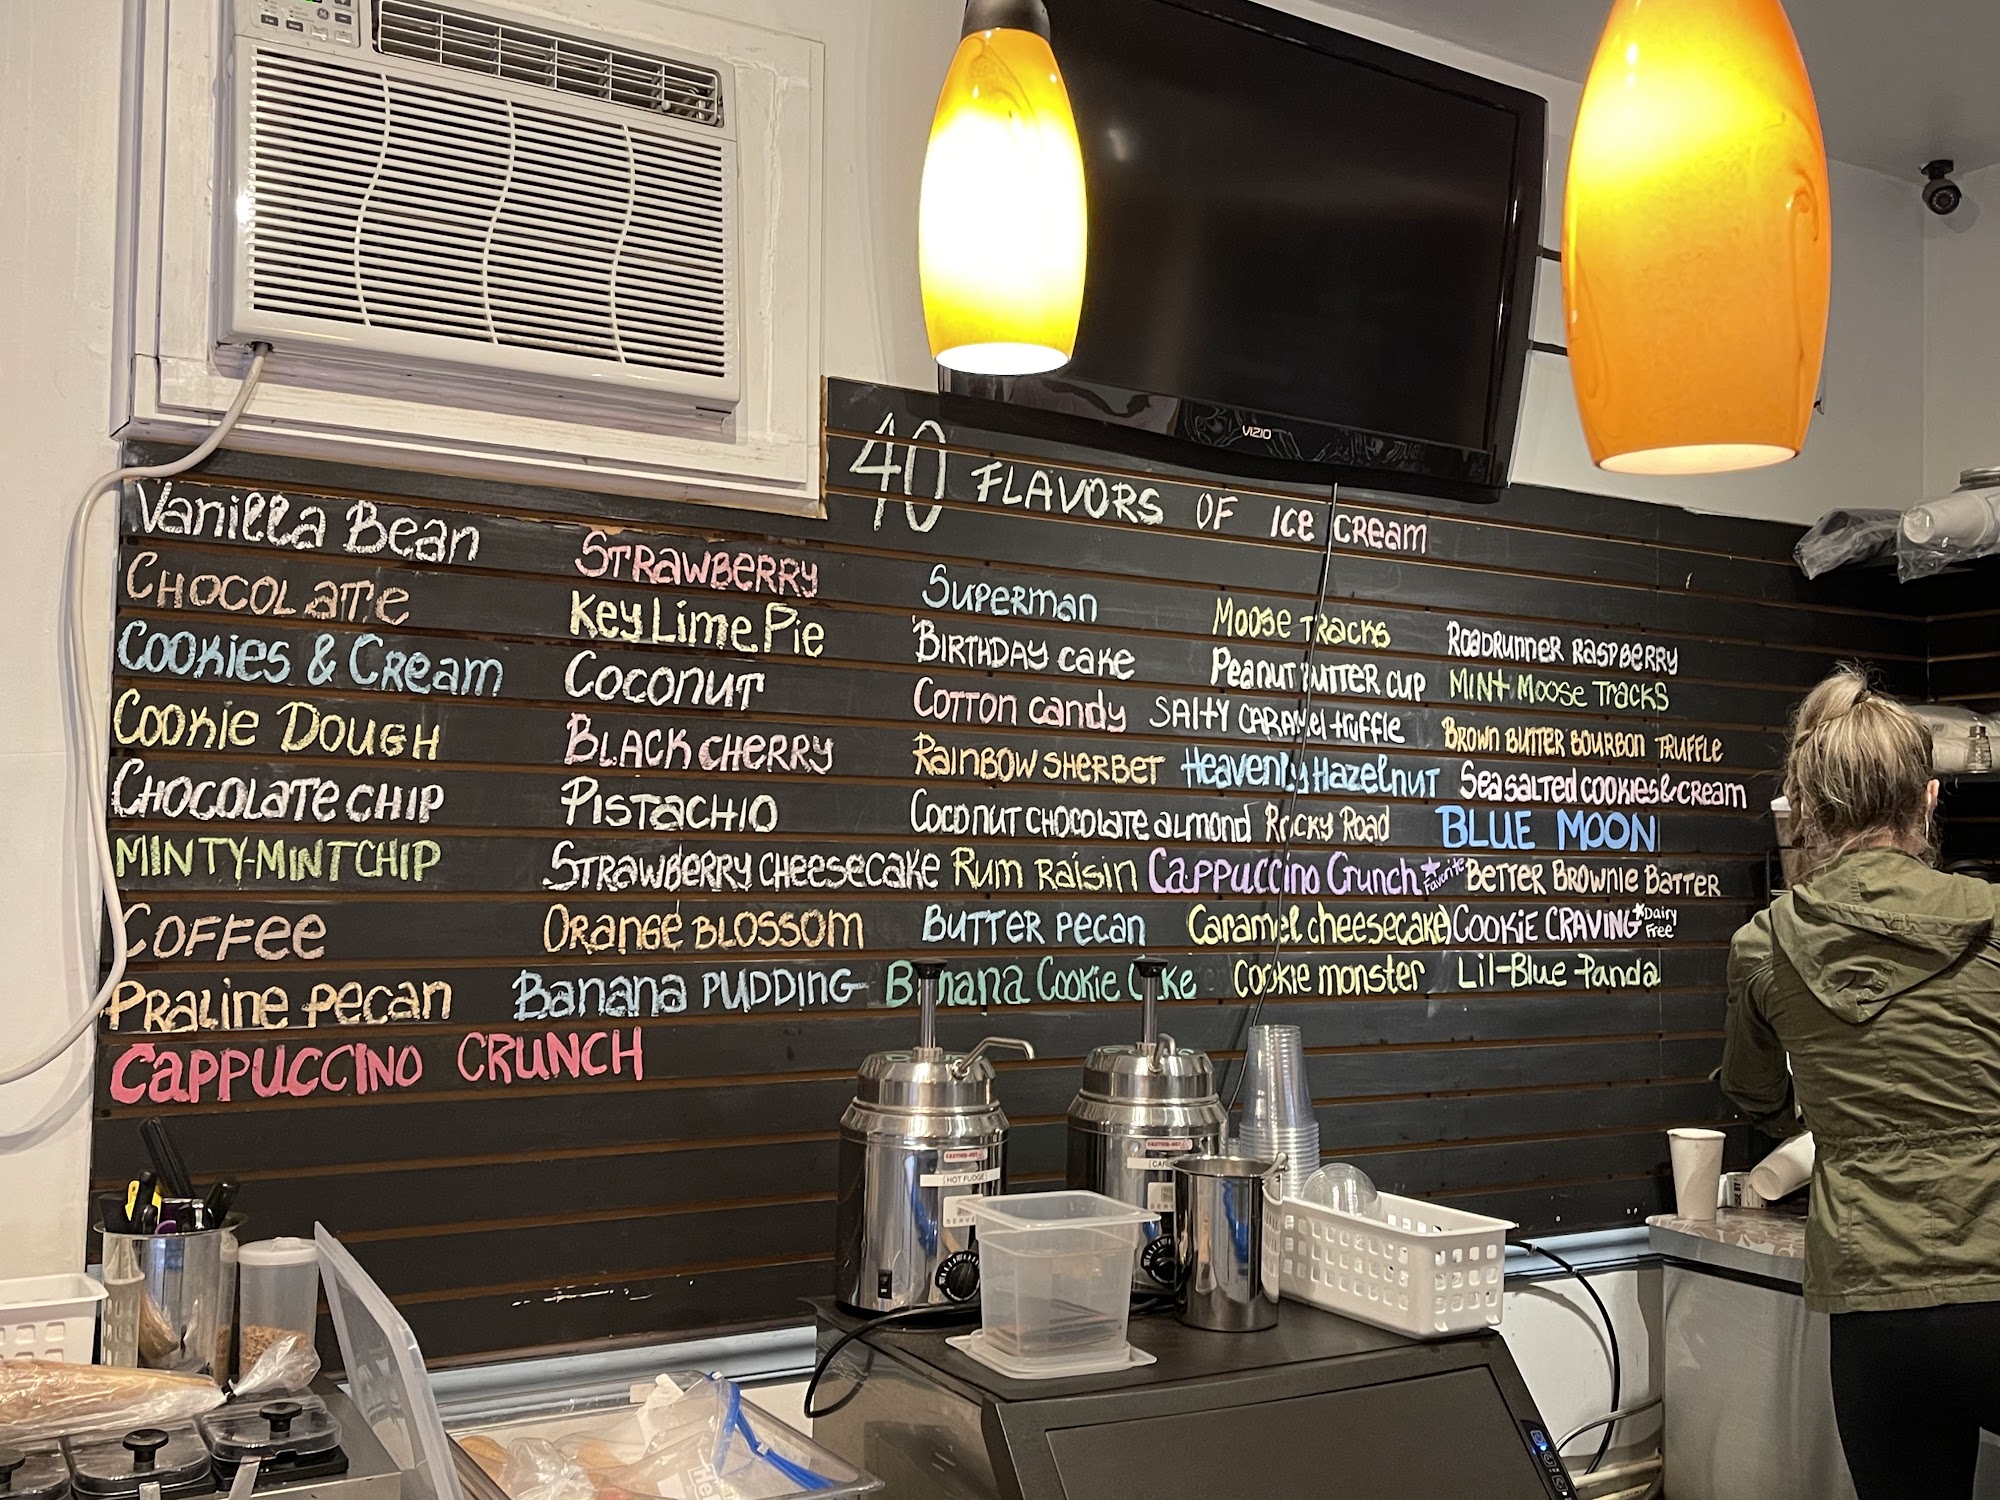 VIZIO
40 FLAVORS OF ICE CREAM
Vanilla Bean
CHOCOLATE
COOKIES & CREAM
COOKIE DOUGH
CHOCOLATE CHIP
MINTY-MINT CHIP
COFFEE
PRALINE PECAN
CAPPUCCINO CRUNCH
STRAWBERRY
Key Lime Pie
COCONUT
BLACK CHERRY
PISTACHIO
STRAWBERRY CHEESECAKE
ORANGE BLOSSOM
Banana PUDDING
SUPERMAN
BIRTHDAY CAKE
COTTON CANDY
RAINBOW SHERBET
COCONUT CHOCOLATE ALMOND
RUM RAISIN
BUTTER PECAN
Banana Cookie Cake
MOOSE TRACKS
PEANUT BUTTER CUP
SALTY CARAMEL TRUFFLE
Heavenly Hazelnut
ROCKY ROAD
Cappuccino Crunch *Favorite
Caramel cheesecake
Cookie monster
ROADRUNNER RASPBERRY
MINT MOOSE TRACKS
BROWN BUTTER BOURBON TRUFFLE
Sea salted cookies & cream
BLUE MOON
BETTER BROWNIE BATTER
COOKIE CRAVING *Dairy Free
Lil-Blue Panda
CAUTION-HOT
HOT FUDGE
CAUTION-HOT